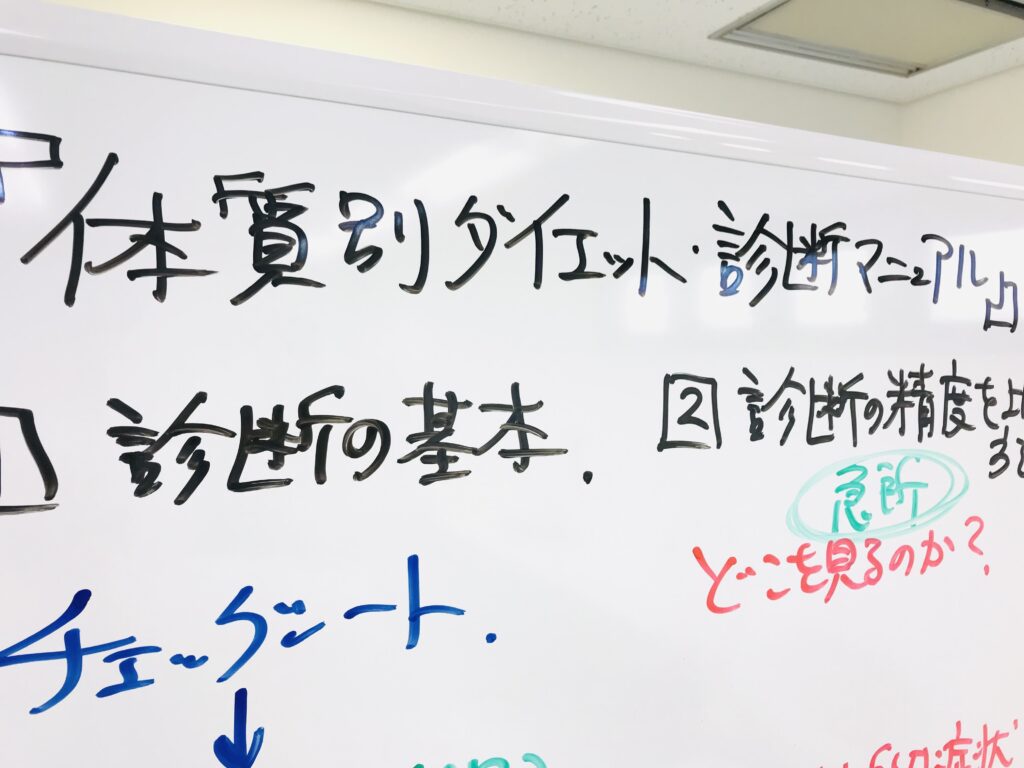 『体質別ダイエット・診断マニュアル』
1 診断の基本.
チェックシート.
↓
2 診断の精度を上
急所
どこを見るのか?
症状